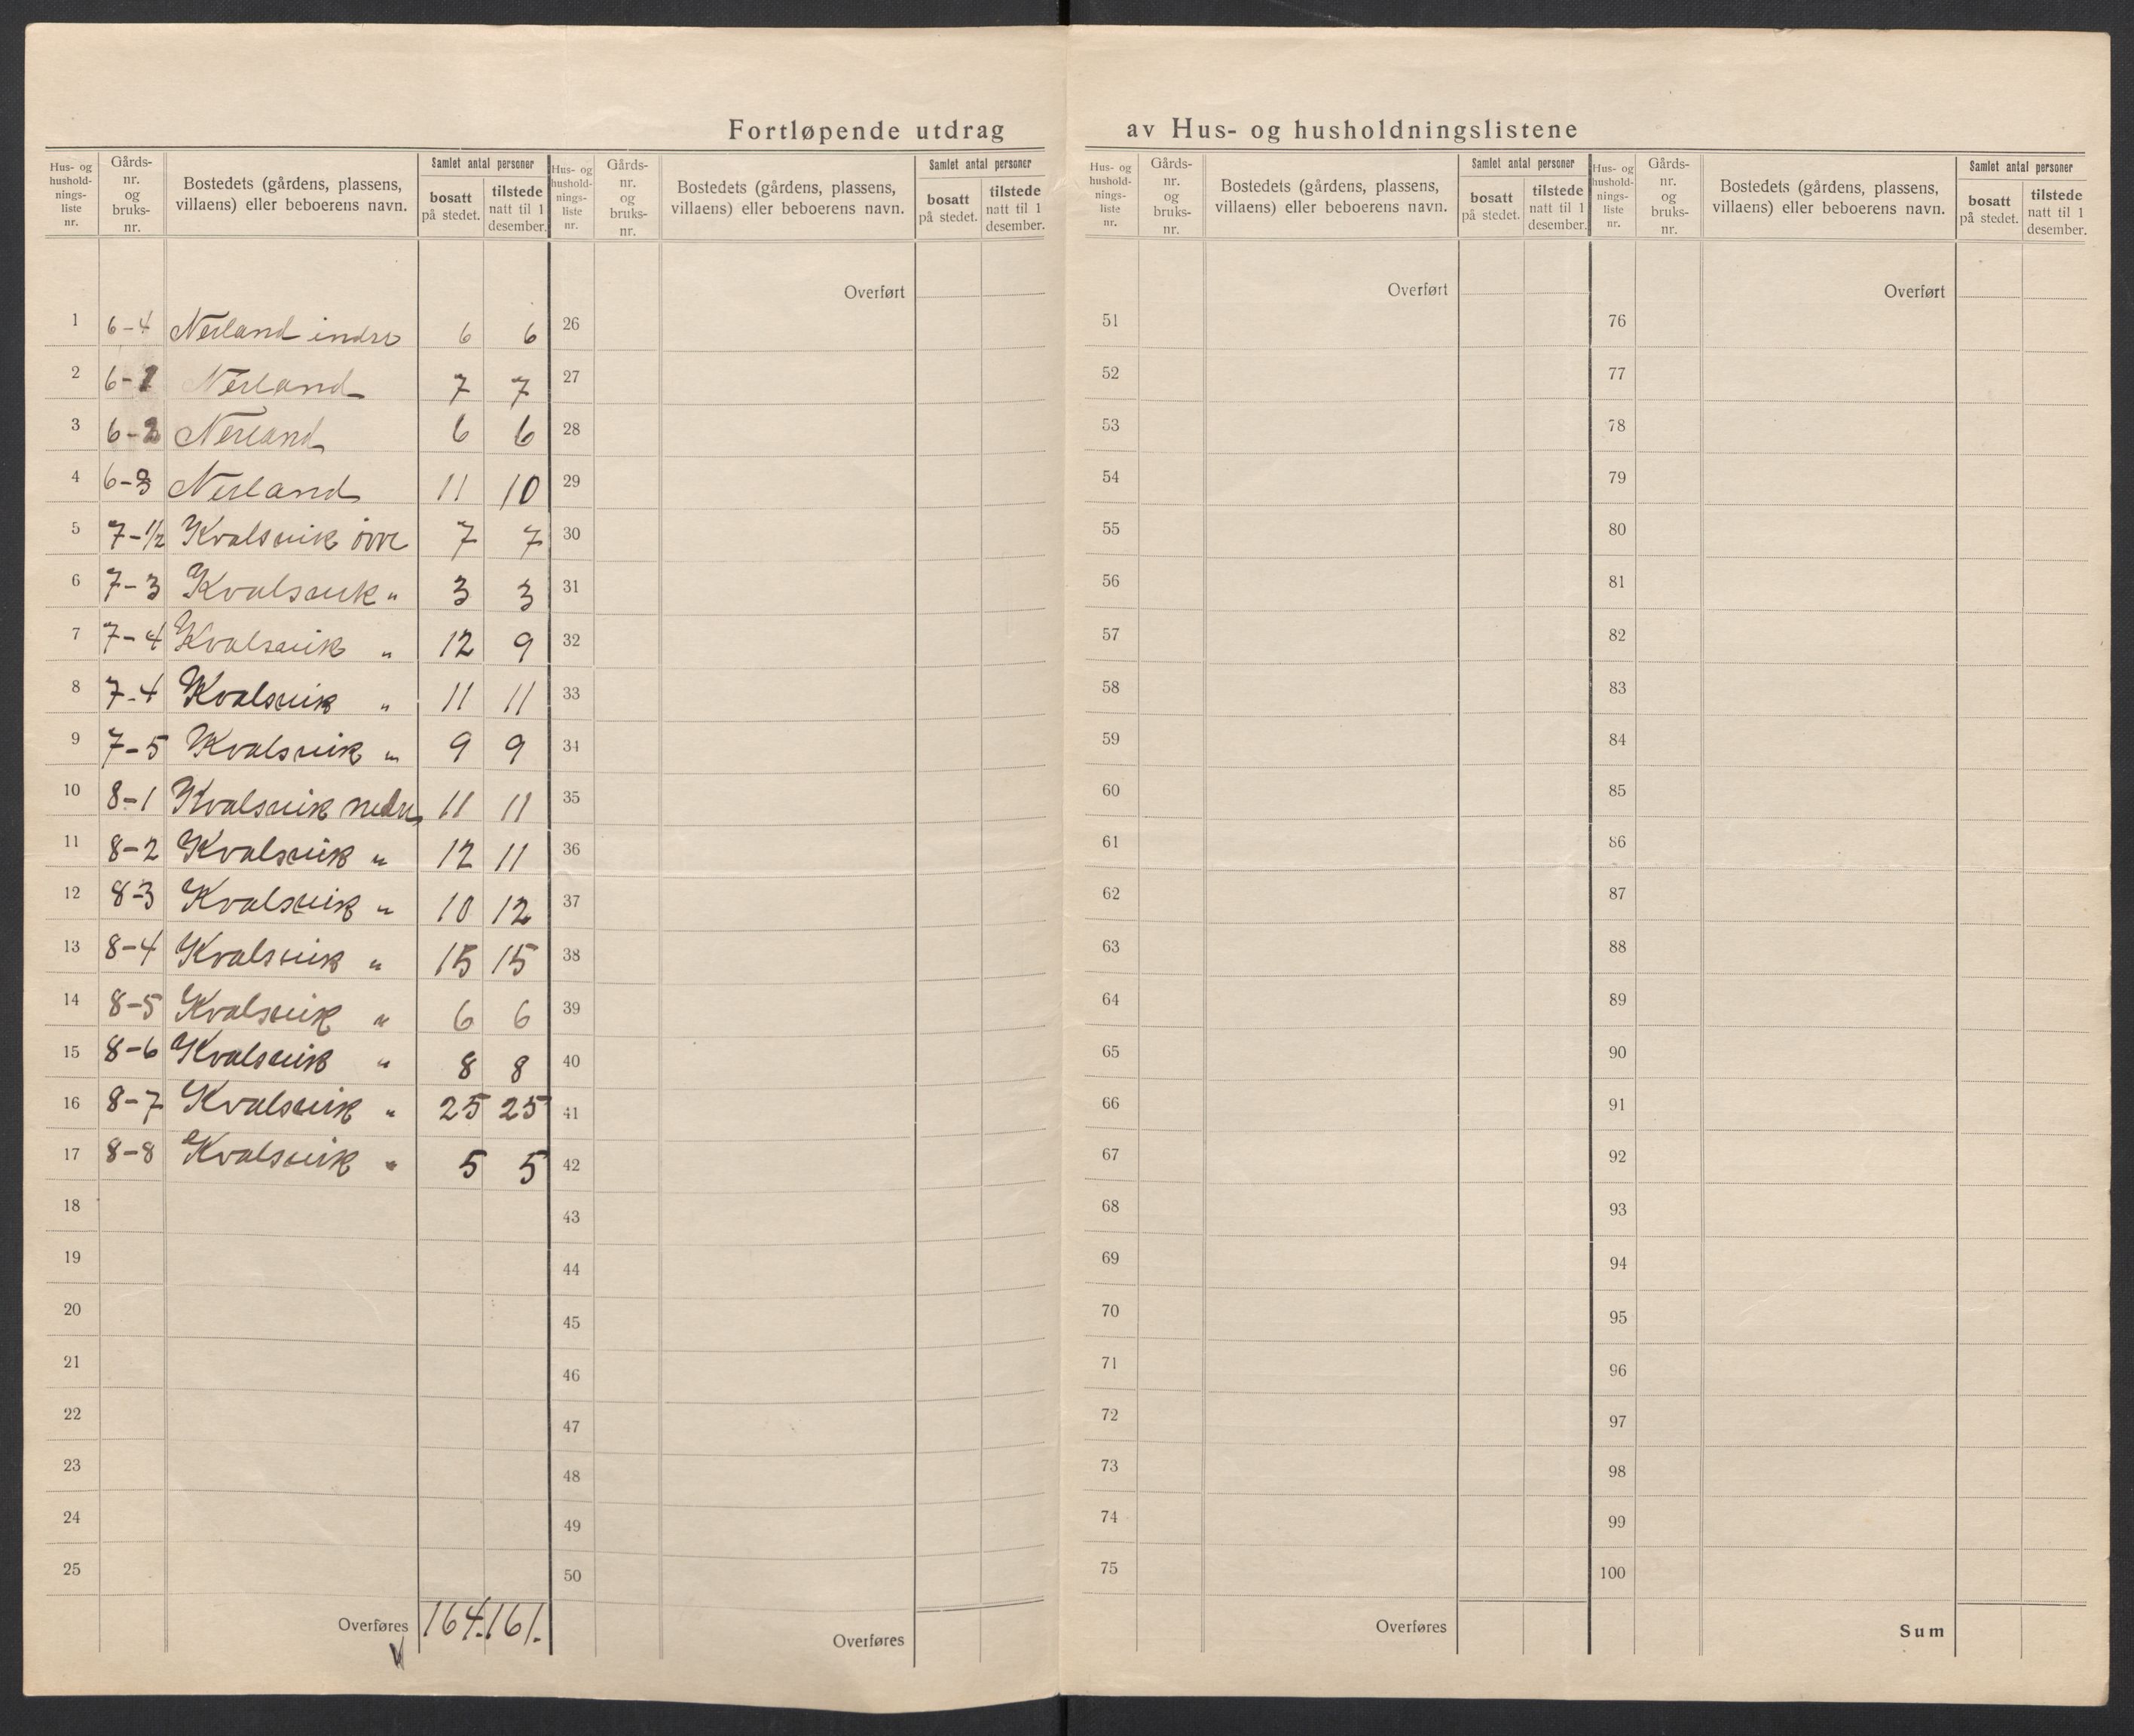 Fortløpende utdrag av Hus- og husholdningslistene
Hus- og hushold-nings-liste nr. Gårds-nr. og bruks-nr. Bostedets (gårdens, plassens, villaens) eller beboerens navn. Samlet antal personer bosatt på stedet. tilstede natt til 1 desember.
1 6-4 Nerland indre 6 6
2 6-1 Nerland 7 7
3 6-2 Nerland 6 6
4 6-3 Nerland 11 10
5 7-1/2 Kvalsvik övre 7 7
6 7-3 Kvalsvik " 3 3
7 7-4 Kvalsvik " 12 9
8 7-4 Kvalsvik " 11 11
9 7-5 Kvalsvik " 9 9
10 8-1 Kvalsvik nedre 11 11
11 8-2 Kvalsvik " 12 11
12 8-3 Kvalsvik " 10 12
13 8-4 Kvalsvik " 15 15
14 8-5 Kvalsvik " 6 6
15 8-6 Kvalsvik " 8 8
16 8-7 Kvalsvik " 25 25
17 8-8 Kvalsvik " 5 5
18
19
20
21
22
23
24
25
Overføres 164. 161.
Hus- og hushold-nings-liste nr. Gårds-nr. og bruks-nr. Bostedets (gårdens, plassens, villaens) eller beboerens navn. Samlet antal personer bosatt på stedet. tilstede natt til 1 desember.
Overført
26
27
28
29
30
31
32
33
34
35
36
37
38
39
40
41
42
43
44
45
46
47
48
49
50
Overføres
Hus- og hushold-nings-liste nr. Gårds-nr. og bruks-nr. Bostedets (gårdens, plassens, villaens) eller beboerens navn. Samlet antal personer bosatt på stedet. tilstede natt til 1 desember.
Overført
51
52
53
54
55
56
57
58
59
60
61
62
63
64
65
66
67
68
69
70
71
72
73
74
75
Overføres
Hus- og hushold-nings-liste nr. Gårds-nr. og bruks-nr. Bostedets (gårdens, plassens, villaens) eller beboerens navn. Samlet antal personer bosatt på stedet. tilstede natt til 1 desember.
Overført
76
77
78
79
80
81
82
83
84
85
86
87
88
89
90
91
92
93
94
95
96
97
98
99
100
Sum